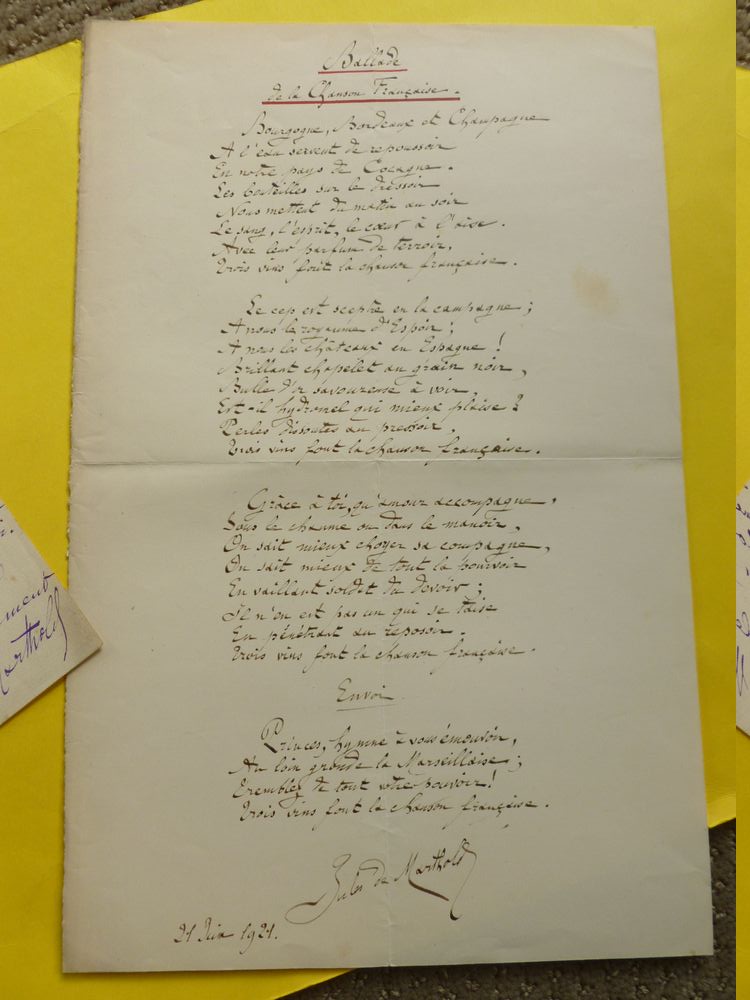 Ballade
de la Chanson Française.
Bourgogne, Bordeaux et Champagne
A l'eau servent de repoussoir
En notre pays de Cocagne.
Les bouteilles sur le dressoir
Nous mettent du matin au soir
Le sang, l'esprit, le cœur à l'aise.
Avec leur parfum de terroir,
Trois vins font la chanson française.
Le cep est sceptre en la campagne ;
A nous le royaume d'Espoir ;
A nous les châteaux en Espagne !
Brillant chapelet au grain noir,
Bulle d'or savoureuse à voir,
Est-il hydromel qui mieux plaise ?
Perles dissoutes au pressoir,
Trois vins font la chanson française.
Grâce à toi, qu'amour accompagne,
Sous le chaume ou dans le manoir,
On sait mieux choyer sa compagne,
On sait mieux de tout la pourvoir
En vaillant soldat du devoir ;
Il n'en est pas un qui se taise
En pénétrant au reposoir.
Trois vins font la chanson française.
Envoi
Princes, hymne à vous émouvoir,
Au loin gronde la Marseillaise ;
Tremblez de tout votre pouvoir !
Trois vins font la chanson française.
Jules de Marthold
21 Juin 1921.
Marthold